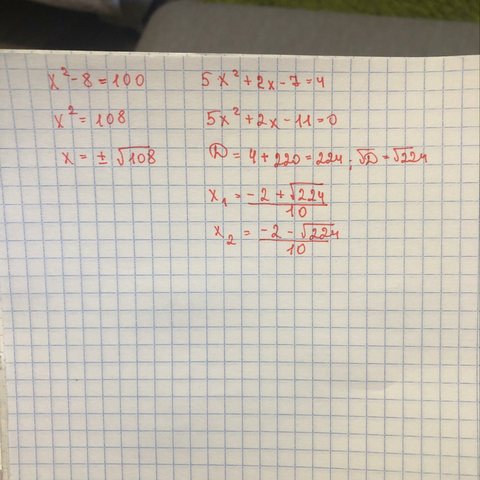 x² - 8 = 100
x² = 108
x = ± √108
5x² + 2x - 7 = 4
5x² + 2x - 11 = 0
D = 4 + 220 = 224; √D = √224
x₁ = (-2 + √224)/10
x₂ = (-2 - √224)/10